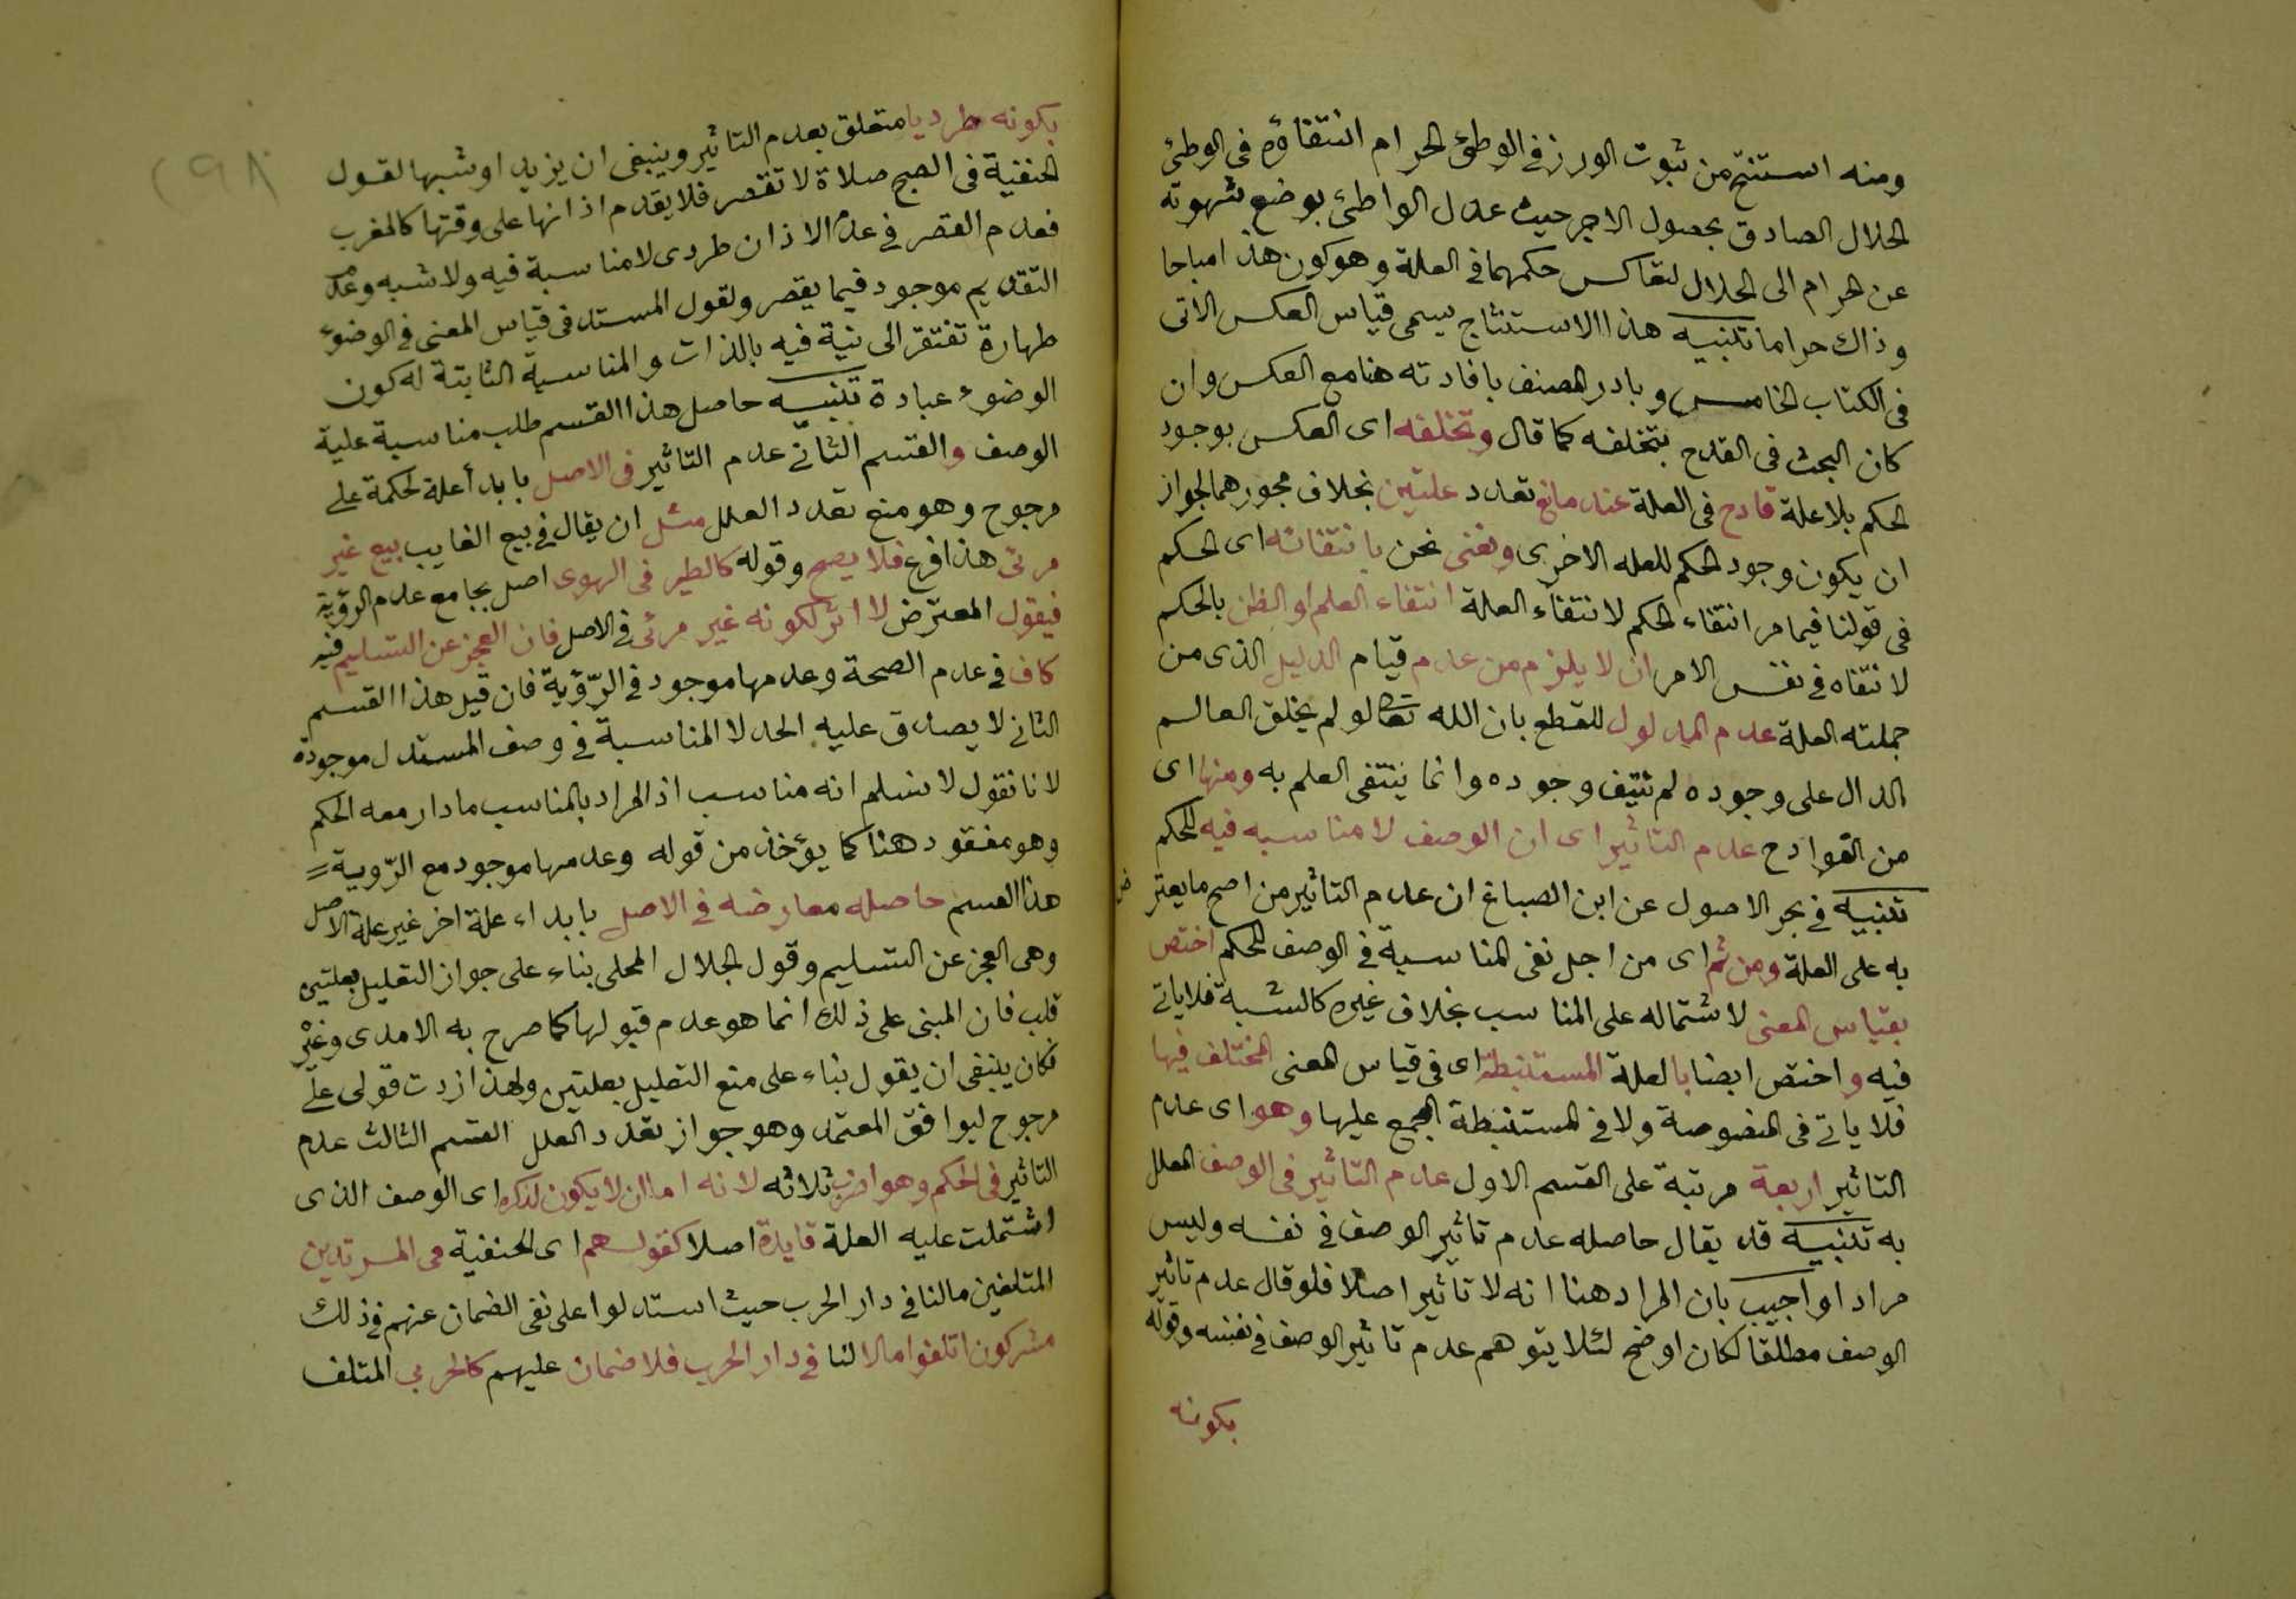 ومنه استنتج من ثبوت الوزر في الوطئ الحرام انتفاؤه في الوطئ
الحلال الصادق بحصول الاجر حيث عدل الواطئ بوضع شهوته
عن الحرام الى الحلال لتعاكس حكمهما في العلة وهو كون هذا مباحا
وذاك حراما تنبيه هذا الاستنتاج يسمى قياس العكس الاتى
فى الكتاب الخامس وبادر المصنف بافادته هنا مع العكس وان
كان البحث فى القدح بتخلفه كما قال وتخلفه اى العكس بوجود
الحكم بلا علة قادح فى العلة عند مانع تعدد علتين بخلاف مجوزهما لجواز
ان يكون وجود الحكم للعله الاخرى ونعنى نحن بانتفائه اى الحكم
فى قولنا فيما مر انتفاء الحكم لانتفاء العلة انتفاء العلم او الظن بالحكم
لا نتفاه في نفس الامر ان لا يلزم من عدم قيام الدليل الذى من
جملته العلة عدم المدلول للقطع بان الله تعالى لو لم يخلق العالم
الدال على وجوده لم ينتف وجوده وانما ينتفى العلم به ومنها اى
من القوادح عدم التاثير اى ان الوصف لا مناسبه فيه للحكم
تنبيه في بحر الاصول عن ابن الصباغ ان عدم التاثير من اصح ما يعتر ض
به على العلة ومن ثم اى من اجل نفى المناسبة في الوصف للحكم اختص
بقياس المعنى لاشتماله على المناسب بخلاف غيره كالشبه فلا ياتي
فيه واختص ايضا بالعلة المستنبطة اى فى قياس المعنى المختلف فيها
فلا ياتي فى المنصوصة ولا في المستنبطة المجمع عليها وهو اى عدم
التاثير اربعة مرتبة على القسم الاول عدم التاثير فى الوصف المعلل
به تنبيه قد يقال حاصله عدم تاثير الوصف في نفسه وليس
مرادا واجيب بان المراد هنا انه لا تاثير اصلا فلو قال عدم تاثير
الوصف مطلقا لكان اوضح لئلا يتوهم عدم تاثير الوصف في نفسه وقوله
بكونه
بكونه طرديا متعلق بعدم التاثير وينبغى ان يزيد او شبها لقول
الحنفية فى الصبح صلاة لا تقصر فلا يقدم اذانها على وقتها كالمغرب
فعدم القصر في عدم الاذان طردى لا مناسبة فيه ولا شبه وعدم
التقديم موجود فيما يقصر ولقول المستدل فى قياس المعنى في الوضوء
طهارة تفتقر الى نية فيه بالذات والمناسبة الثابتة له كون
الوضوء عبادة تنبيه حاصل هذا القسم طلب مناسبة علية
الوصف والقسم الثاني عدم التاثير في الاصل بابدأ علة لحكمة على
مرجوح وهو منع تعدد العلل مثل ان يقال في بيع الغايب بيع غير
مرئى هذا فرع فلا يصح وقوله كالطير فى الهوى اصل بجامع عدم الرؤية
فيقول المعترض لا اثر لكونه غير مرئى في الاصل فان العجز عن التسليم فيه
كاف في عدم الصحة وعدمها موجود في الرؤية فان قيل هذا القسم
الثاني لا يصدق عليه الحد لا المناسبة في وصف المستدل موجودة
لانا نقول لا نسلم انه مناسب اذ المراد بالمناسب ما دار معه الحكم
وهو مفقود هنا كما يؤخذ من قوله وعدمها موجود مع الرّوية =
هذا القسم حاصله معارضه في الاصل بابداء علة اخر غير علة الاصل
وهى العجز عن التسليم وقول الجلال المحلى بناء على جواز التعليل بعلتين
قلب فان المبنى على ذلك انما هو عدم قبولها كما صرح به الامدى وغيره
فكان ينبغى ان يقول بناء على منع التعليل بعلتين ولهذا زدت قولى على
مرجوح ليوافق المعتمد وهو جواز تعدد العلل القسم الثالث عدم
التاثير في الحكم وهو اضرب ثلاثه لانه اما ان لا يكون لذكره اى الوصف الذى
اشتملت عليه العلة فايدة اصلا كقولهم اى الحنفية فى المرتدين
المتلفين مالنا في دار الحرب حيث استدلوا على نفى الضمان عنهم في ذلك
مشركون اتلفوا مالا لنا في دار الحرب فلا ضمان عليهم كالحربي المتلف